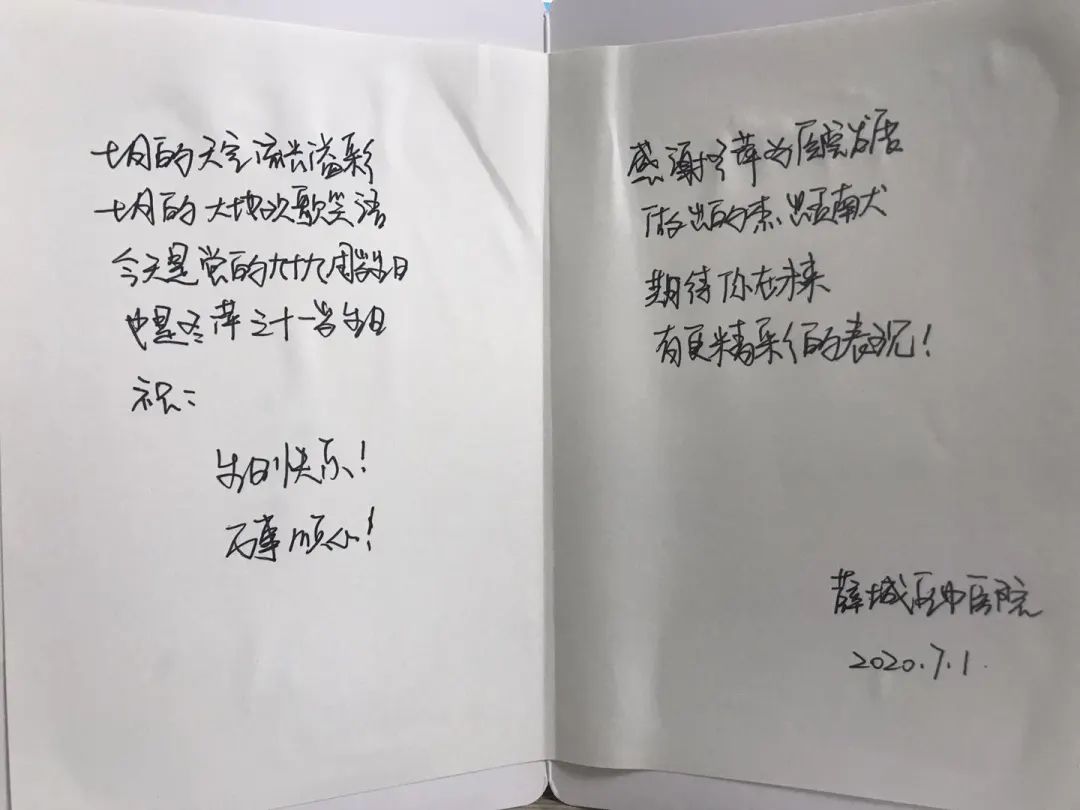 七月的天空流光溢彩
七月的大地欢歌笑语
今天是党的九十九周岁生日
也是冬萍三十一岁生日
祝:
生日快乐!
万事顺心!
感谢冬萍为医院发展
做出的杰出贡献
期待你在未来
有更精彩的表现!
薛城区中医院
2020.7.1.